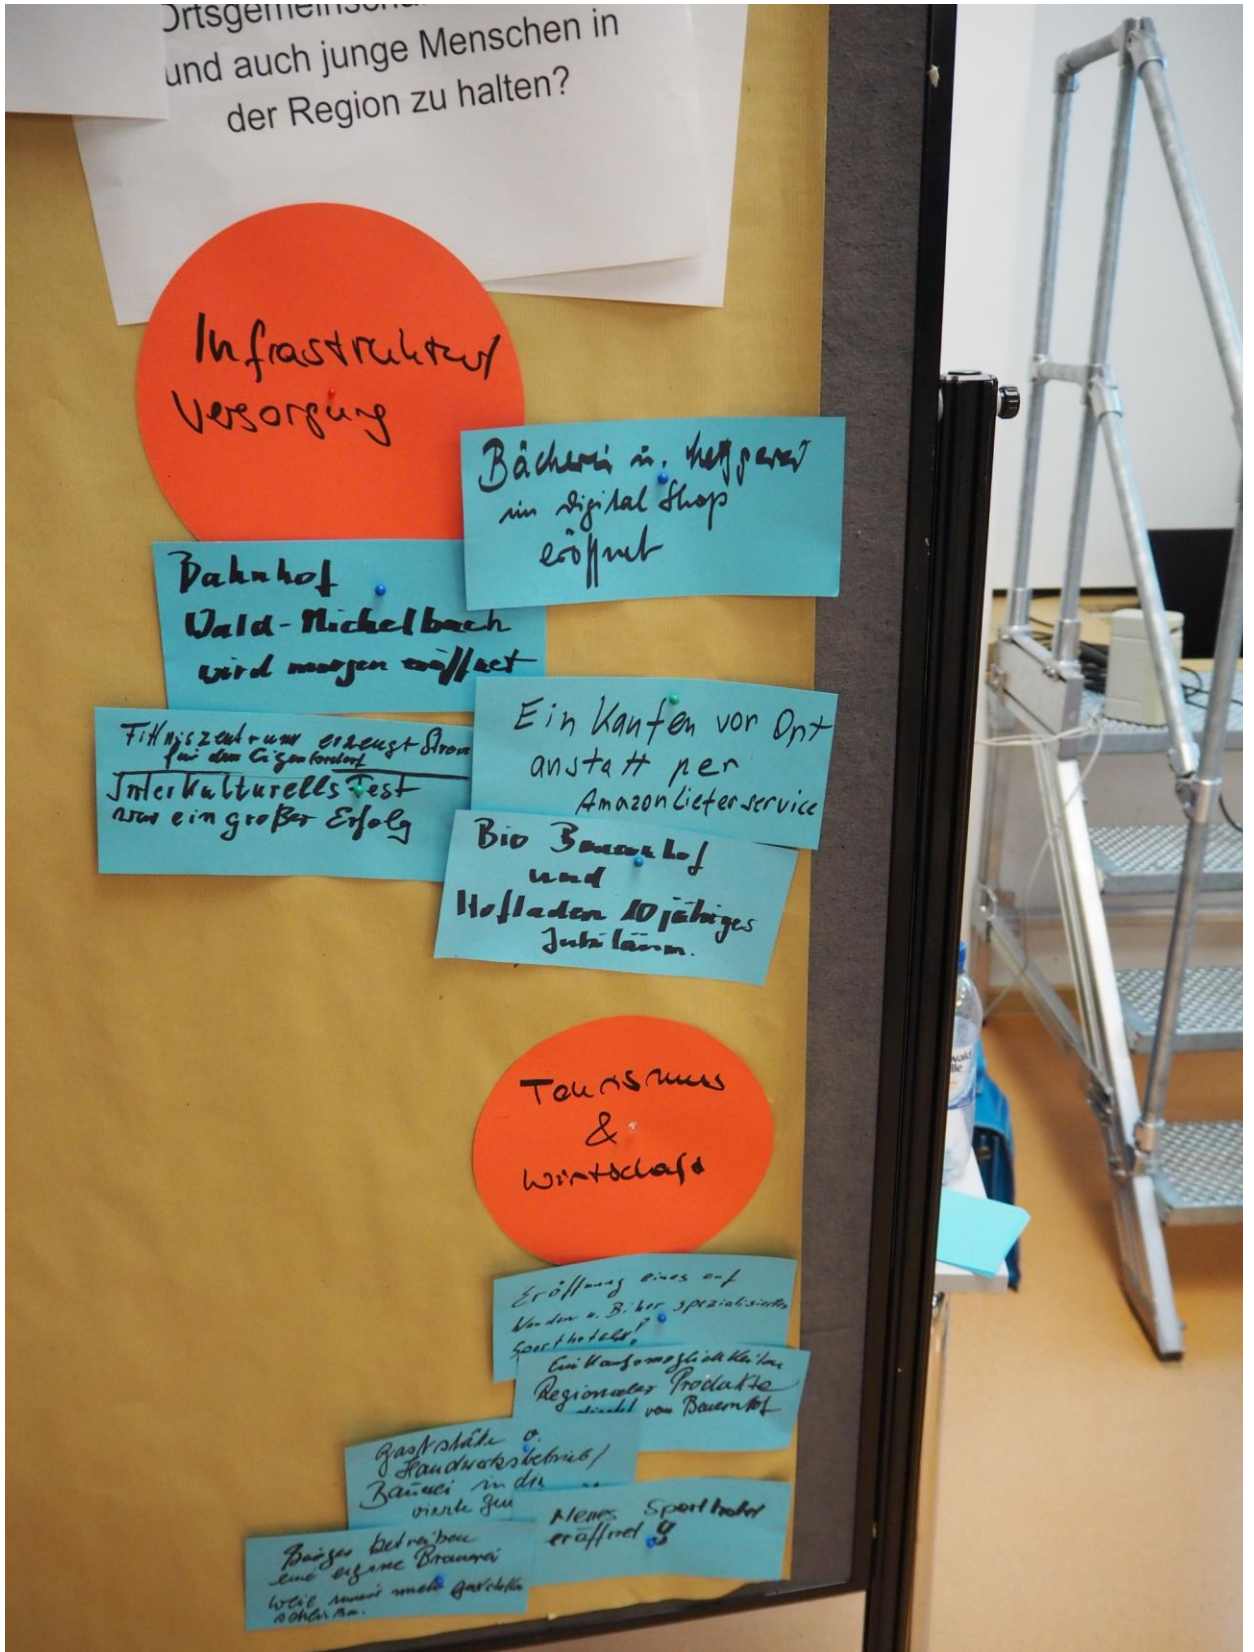 Ortsgemeinscha
und auch junge Menschen in
der Region zu halten?
Infrastruktur/
Versorgung
Bäckerei u. Metzgerei
im digital Shop
eröffnet
Bahnhof
Wald-Michelbach
wird morgen eröffnet
Fittniszentrum erzeugt Strom
für den Eigenbedarf
Interkulturells Fest
war ein großer Erfolg
Ein Kaufen vor Ort
anstatt per
Amazon Lieferservice
Bio Bauernhof
und
Hofladen 10 jähriges
Jubiläum.
Tourismus
&
Wirtschaft
Eröffnung eines auf
u. Biker spezialisierten
Sporthotels!
Einkaufsmöglichkeiten
Regionaler Produkte
direkt vom Bauernhof
Gaststätte o.
Handwerksbetrieb/
in die
vierte Gen
Neues Sporthotel
eröffnet
Bürger betreiben
eine eigene Brauerei
weil immer mehr
wald
lle